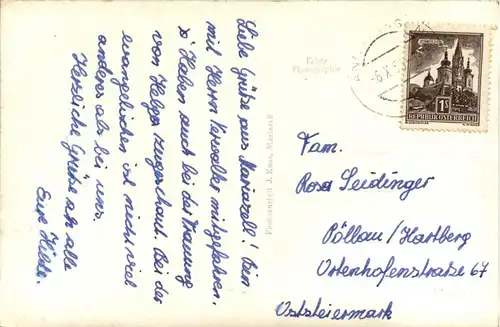 Liebe Grüße aus Mariazell! Bin
mit Herrn Verwalter mitgefahren.
Haben auch bei der Trauung
von Helga zugeschaut. Bei der
evangelischen ist nicht viel
anders als bei uns.
Herzliche Grüße an alle
Eure Hilde.
Echte
Photographie
Postkartenverlag J. Kuss, Mariazell
1S
REPUBLIK ÖSTERREICH
Fam.
Rosa Seidinger
Pöllau/Hartberg
Ortenhofenstraße 67
Oststeiermark